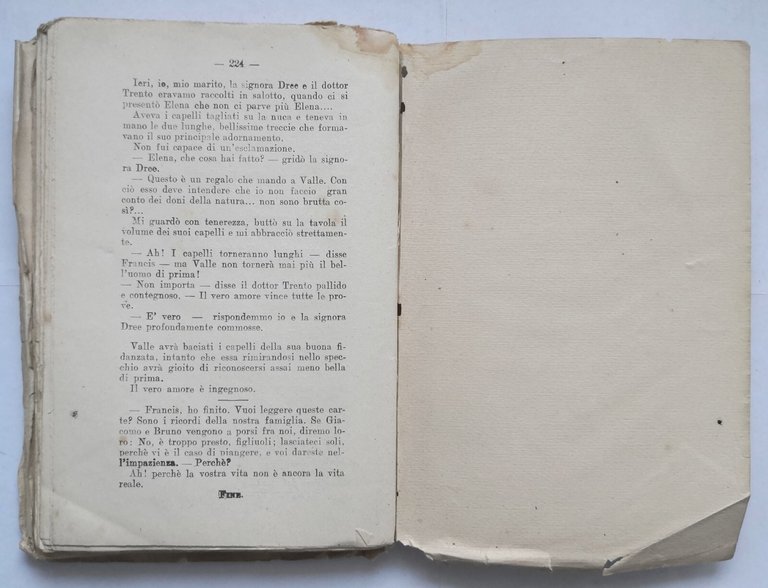 — 224 —
Ieri, io, mio marito, la signora Dree e il dottor
Trento eravamo raccolti in salotto, quando ci si
presentò Elena che non ci parve più Elena....
Aveva i capelli tagliati su la nuca e teneva in
mano le due lunghe, bellissime treccie che forma-
vano il suo principale adornamento.
Non fui capace di un'esclamazione.
— Elena, che cosa hai fatto? — gridò la signo-
ra Dree.
— Questo è un regalo che mando a Valle. Con
ciò esso deve intendere che io non faccio gran
conto dei doni della natura... non sono brutta co-
sì?...
Mi guardò con tenerezza, buttò su la tavola il
volume dei suoi capelli e mi abbracciò strettamen-
te.
— Ah! I capelli torneranno lunghi — disse
Francis — ma Valle non tornerà mai più il bel-
l'uomo di prima!
— Non importa — disse il dottor Trento pallido
e contegnoso. — Il vero amore vince tutte le pro-
ve.
— E' vero — rispondemmo io e la signora
Dree profondamente commosse.
Valle avrà baciati i capelli della sua buona fi-
danzata, intanto che essa rimirandosi nello spec-
chio avrà gioito di riconoscersi assai meno bella
di prima.
Il vero amore è ingegnoso.
— Francis, ho finito. Vuoi leggere queste car-
te? Sono i ricordi della nostra famiglia. Se Gia-
como e Bruno vengono a porsi fra noi, diremo lo-
ro: No, è troppo presto, figliuoli; lasciateci soli,
perchè vi è il caso di piangere, e voi dareste nel-
l'impazienza. — Perchè?
Ah! perchè la vostra vita non è ancora la vita
reale.
FINE.